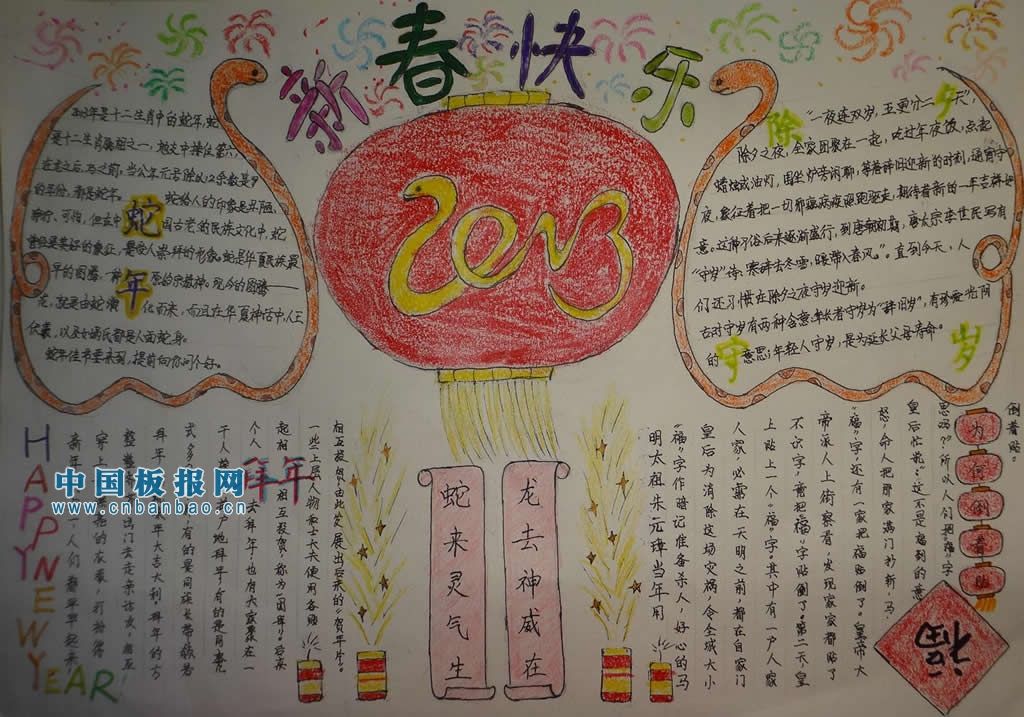 新春快乐
2013
2013年是十二生肖中的蛇年,蛇
是十二生肖属相之一,地支中排位第六,
在龙之后,马之前。当公年元号除以12余数是9
的年份,都是蛇年。
蛇年
蛇给人的印象是丑陋、
古老的民族文化中,蛇
曾经是美好的象征,是受人崇拜的形象。蛇是华夏民族最
早的图腾
原始宗教神。现今的图腾——
龙,就是由蛇演化而来,而且在华夏神话中人王
伏羲,以至女娲氏都是人面蛇身。
蛇年佳节要来到,提前向你问个好。
除夕守岁
“一夜连双岁,五更分二天”,
除夕之夜,全家团聚在一起,吃过年夜饭,点起
蜡烛或油灯,围坐炉旁闲聊,等着辞旧迎新的时刻,通宵守
夜,象征着把一切邪瘟病疫照跑驱走,期待着新的一年吉祥如
意。这种习俗后来逐渐盛行,到唐朝初期,唐太宗李世民写有
“守岁”诗:寒辞去冬雪,暖带入春风”。直到今天,人
们还习惯在除夕之夜守岁迎新。
古时守岁有两种含意:年长者守岁为“辞旧岁”,有珍爱光阴
的意思;年轻人守岁,是为延长父母寿命。
为何倒着贴
明太祖朱元璋当年用
“福”字作暗记准备杀人,好心的马
皇后为消除这场灾祸,令全城大小
人家,必需在天明之前都在自家门
上贴上一个“福”字。其中有一户人家
不识字,竟把“福”字贴倒了。第二天,皇
帝派人上街察看,发现家家都贴了
“福”字,还有一家把福贴倒了。皇帝大
怒,命人把那家满门抄斩,马
皇后忙说:“这不是福到的意
思吗?”所以人们把“福”字
倒着贴。
福
龙去神威在
蛇来灵气生
拜年
新年
人们都早早起来,
拜年大吉大利。拜年的方
式多
有的是同族长带领若
干人挨
户地拜年;有的是同事
去拜年;也有大家聚在一
起相
相互祝贺,称为“团拜”。后来
一些上层人物和士大夫使用各贴
相互投贺,由此发展出后来的“贺年片”。
HAPPY NEW YEAR
中国板报网
www.cnbanbao.cn